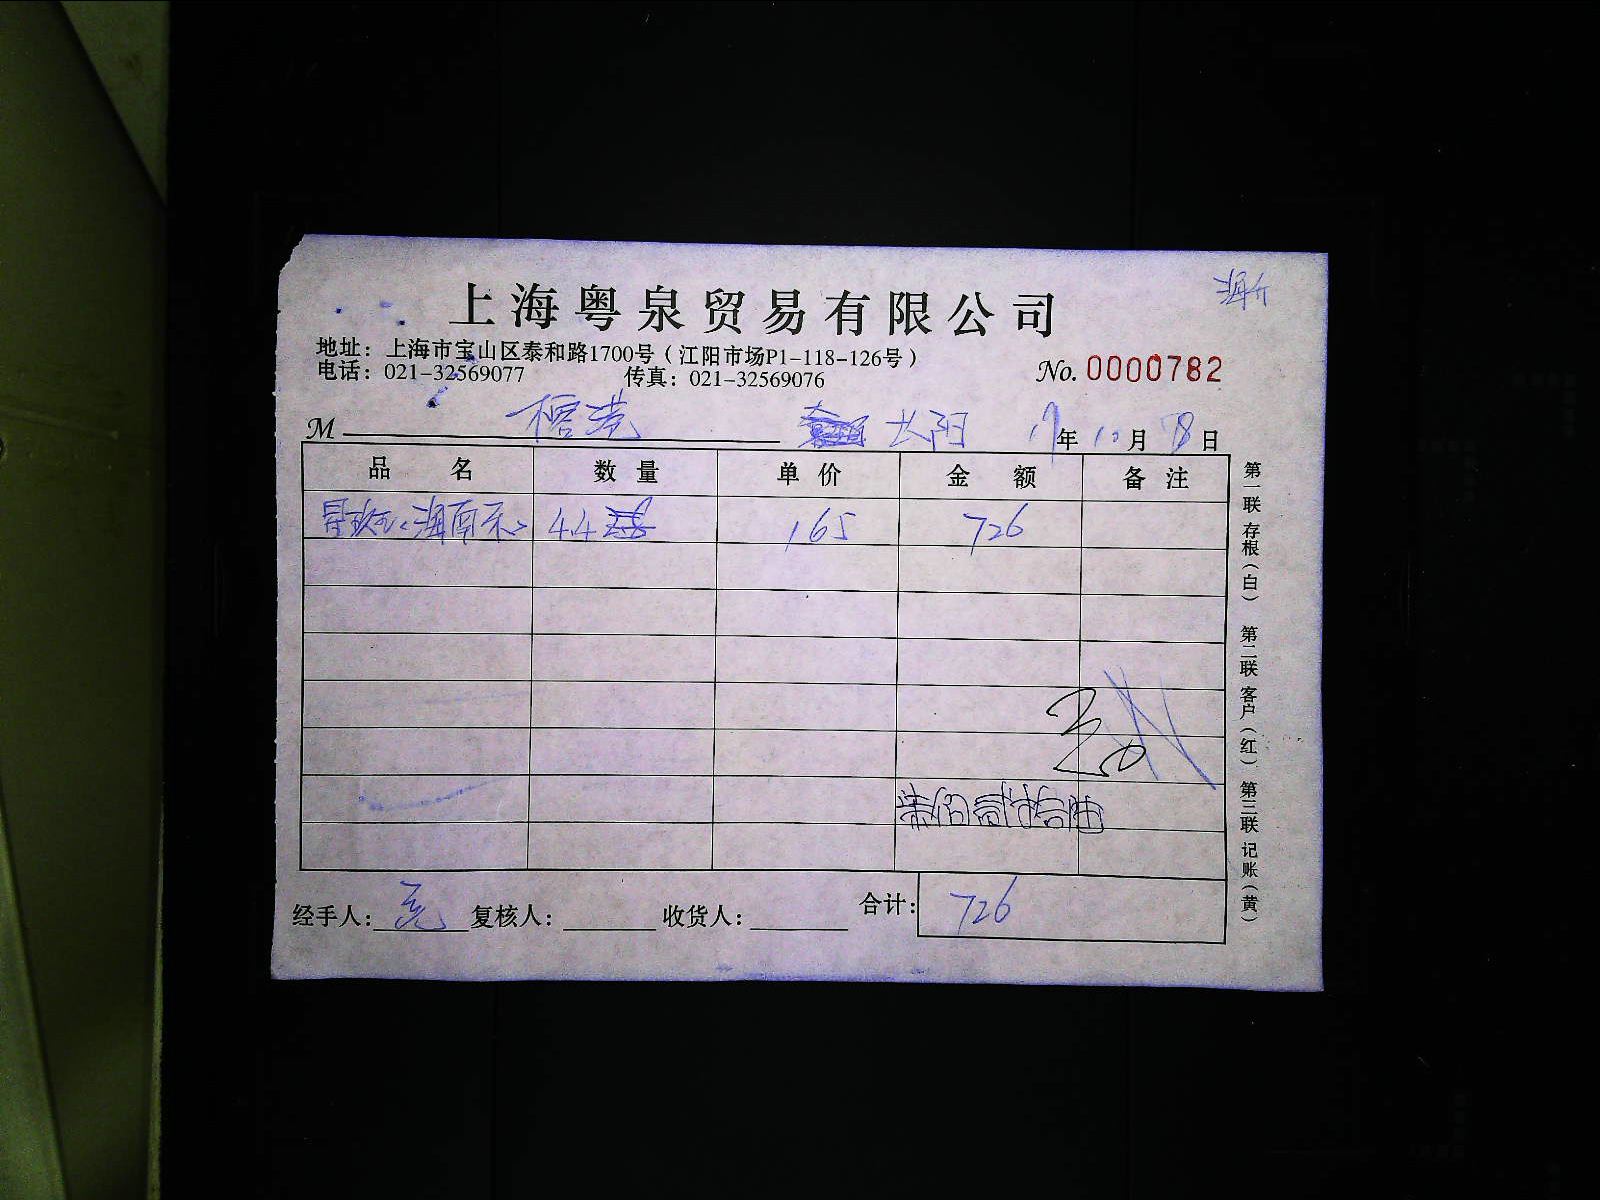 上海粤泉贸易有限公司
地址：上海市宝山区泰和路1700号（江阳市场P1-118-126号）
电话：021-32569077 传真：021-32569076
No. 0000782
M 长阳 17年10月 8日
品名 数量 单价 金额 备注
<海南禾> 4.4 165 726
柒佰贰拾陆
经手人： 复核人： 收货人： 合计： 726
第一联 存根（白） 第二联 客户（红） 第三联 记账（黄）